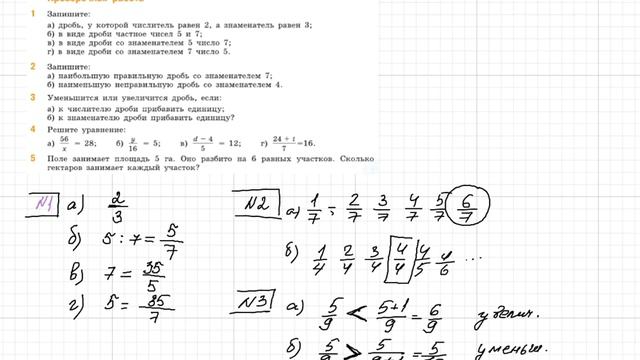 1 Запишите:
а) дробь, у которой числитель равен 2, а знаменатель равен 3;
б) в виде дроби частное чисел 5 и 7;
в) в виде дроби со знаменателем 5 число 7;
г) в виде дроби со знаменателем 7 число 5.
2 Запишите:
а) наибольшую правильную дробь со знаменателем 7;
б) наименьшую неправильную дробь со знаменателем 4.
3 Уменьшится или увеличится дробь, если:
а) к числителю дроби прибавить единицу;
б) к знаменателю дроби прибавить единицу?
4 Решите уравнение:
а) 56/x = 28; б) y/16 = 5; в) d − 4/5 = 12; г) 24 + t/7 =16.
5 Поле занимает площадь 5 га. Оно разбито на 6 равных участков. Сколько
гектаров занимает каждый участок?
N1 а) 2/3
б) 5 : 7 = 5/7
в) 7 = 35/5
г) 5 = 35/7
N2 а) 1/7 ; 2/7 3/7 4/7 5/7 6/7
б) 1/4 2/4 3/4 4/4 4/5 4/6 ...
N3 а) 5/9 < 5+1/9 = 6/9 увелич.
б) 5/9 > 5/9+1 = 5/ уменьш.